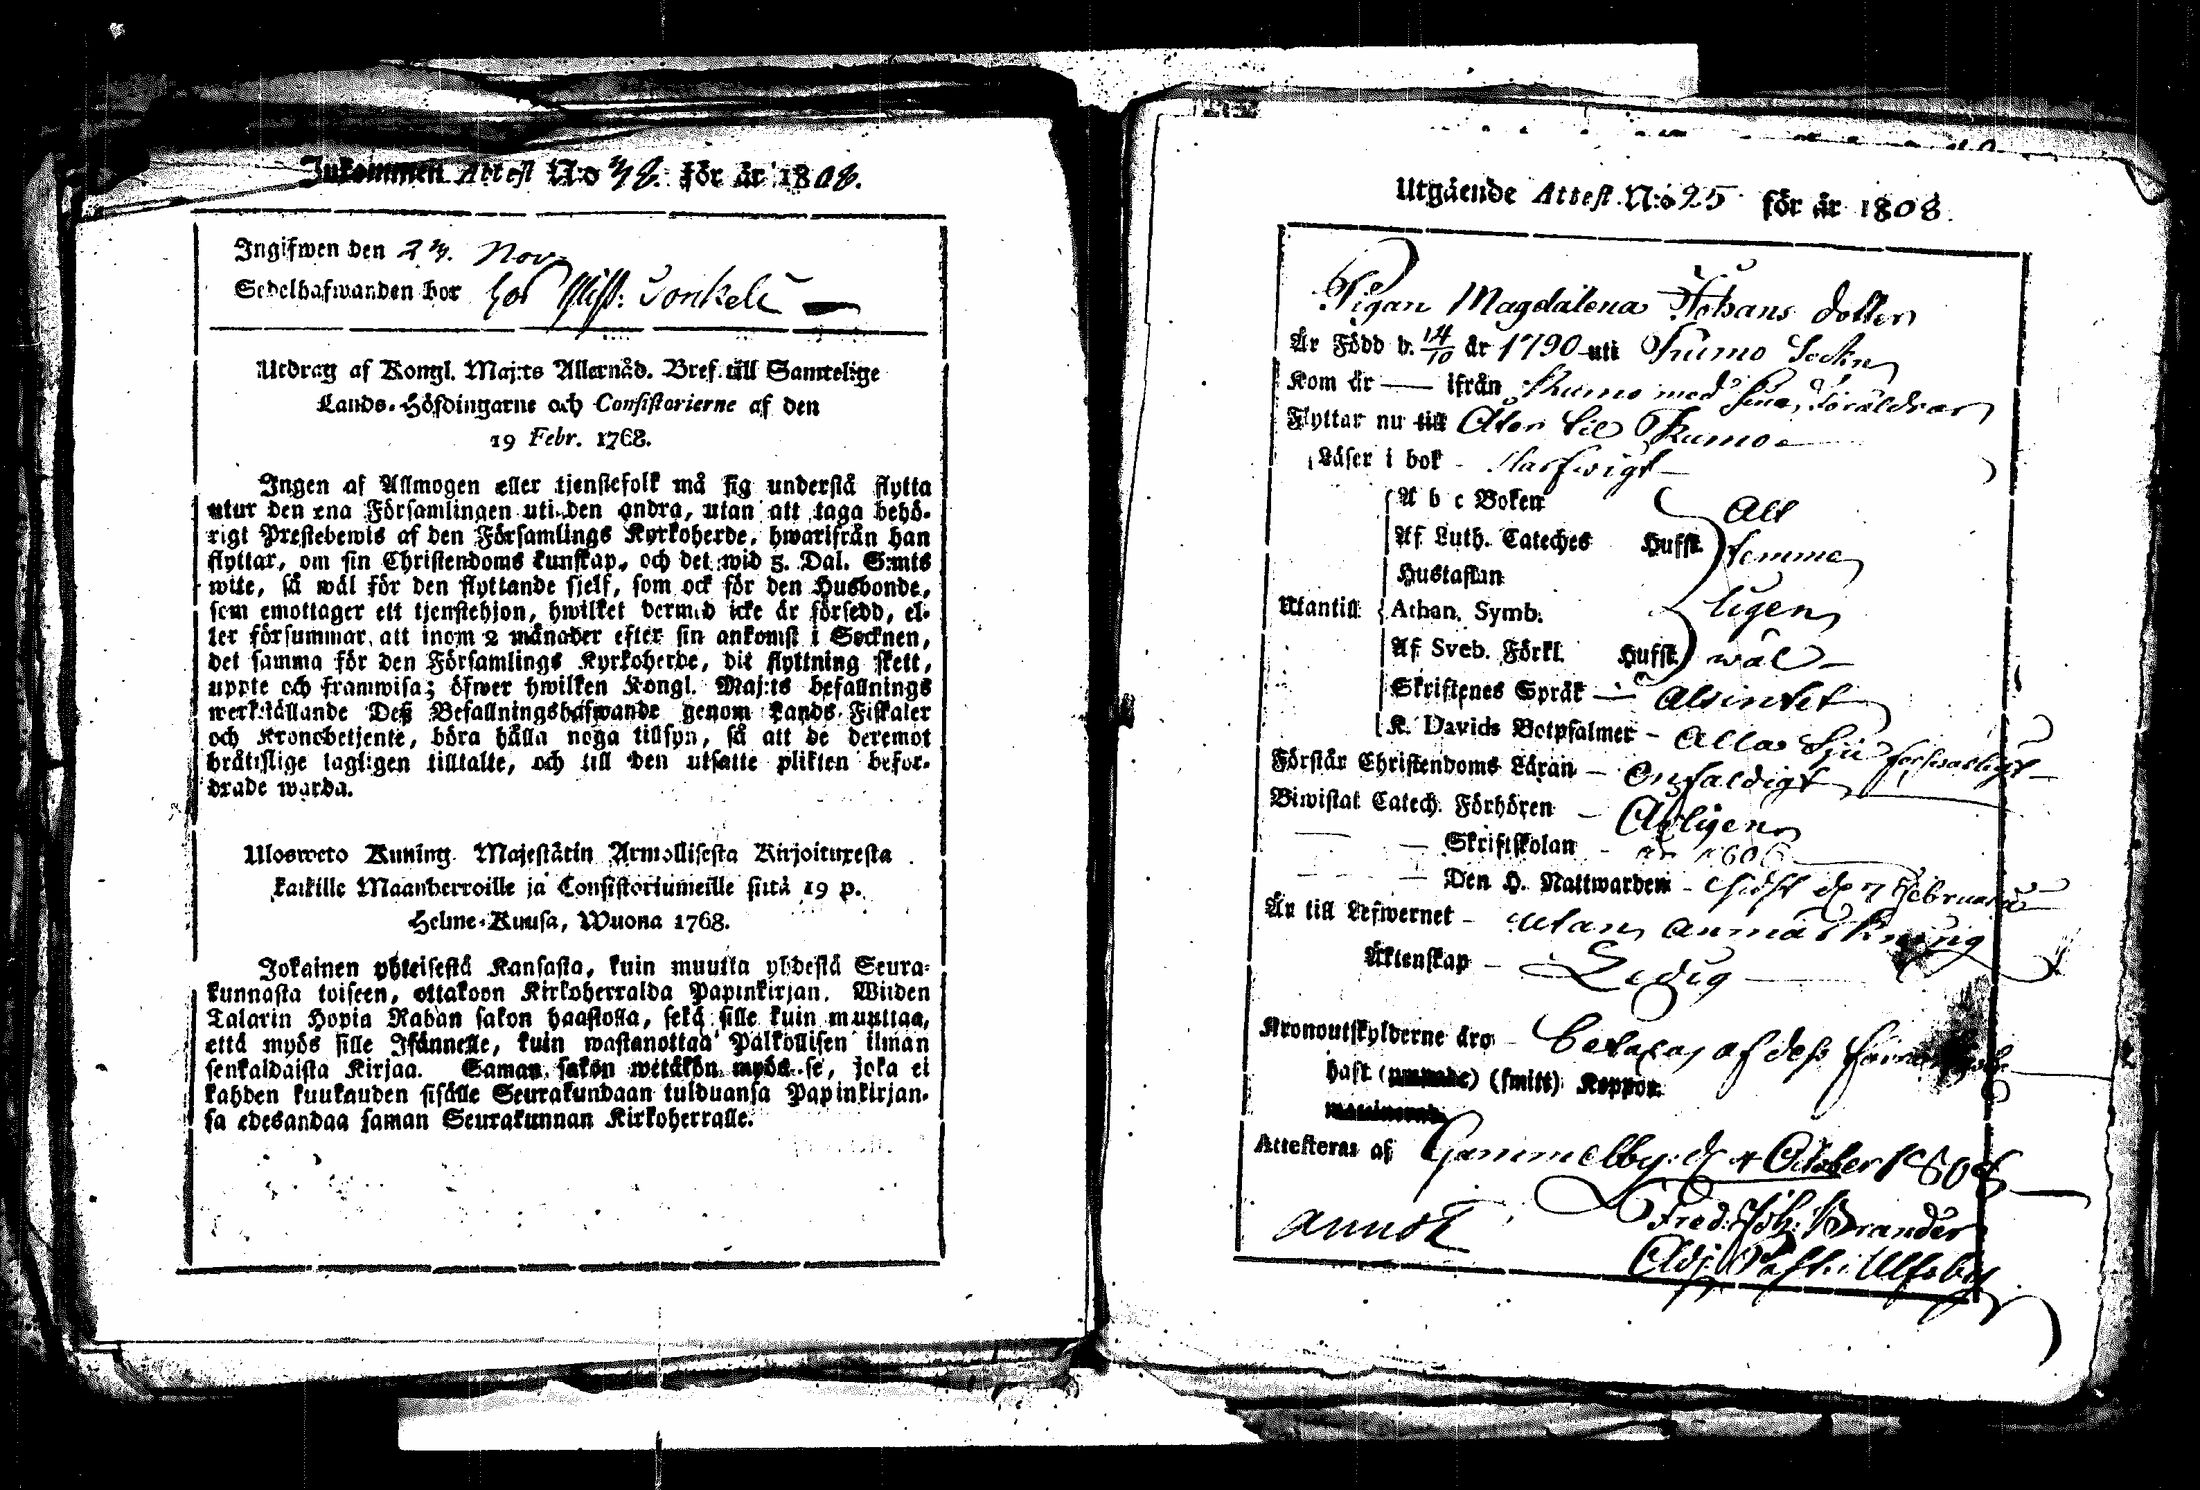 Inkommen Attest N:o 38. för år 1808.
Ingifwen den 23. Nov.
Sedelhafwanden bor hos
Utdrag af Kongl. Maj:ts Allernåd. Bref till Samtelige
Lands-Höfdingarne och Consistorierne af den
19 Febr. 1768.
Ingen af Allmogen eller tjenstefolk må sig understå flytta
utur den ena Församlingen uti den andra, utan att taga behö-
rigt Prestebewis af den Församlings Kyrkoherde, hwarifrån han
flyttar, om sin Christendoms kunskap, och det wid 5. Dal. S:mts
wite, så wäl för den flyttande sjelf, som ock för den Husbonde,
som emottager ett tjenstehjon, hwilket dermed icke är försedd, el-
ler försummar att inom 2 månader efter sin ankomst i Socknen,
det samma för den Församlings Kyrkoherde, dit flyttning skett,
uppte och framwisa; öfwer hwilken Kongl. Maj:ts befallnings
werkställande Deß Befallningshafwande genom Lands-Fiskaler
och Kronobetjente, böra hålla noga tillsyn, så att de deremot
bråtislige lagligen tilltalte, och till den utsatte plikten befor-
drade warda.
Ulosweto Kuning. Majestätin Armollisesta Kirjoituxesta
kaikille Maanherroille ja Consistoriumeille siitä 19 p.
Helme-Kuusa, Wuona 1768.
Jokainen yhteisestä Kansasta, kuin muutta yhdestä Seura-
kunnasta toiseen, ottakoon Kirkoherralda Papinkirjan. Wiiden
Talarin Hopia Rahan sakon haastolla, sekä sille kuin muuttaa,
että myös sille Isännelle, kuin wastanottaa Palkollisen ilman
senkaldaista Kirjaa. Saman sakon wetäkön myös se, joka ei
kahden kuukauden sisälle Seurakundaan tulduansa Papinkirjan-
sa edesandaa saman Seurakunnan Kirkoherralle.
Utgående Attest N:o 25 för år 1808.
Pigan Magdalena Johans dotter
Är Född d. 14/10 år 1790 uti Kumo Sockn
Kom år — ifrån Kumo med sina Föräldrar
Flyttar nu till Åter til Kumo
Läser i bok - Harfwigt
A b c Boken
Af Luth. Cateches Hufst. Alt
Hustaflan temme
Utantill Athan. Symb. ligen
Af Sveb. Förkl. Hufst. wäl
Skriftenes Språk - Alsintet
K. Davids Botpsalmer - Alla Sju
Förstår Christendoms Läran - Enfaldigt
Biwistat Catech. Förhören - Årligen
Skriftskolan - år 1806
Den H. Nattwarden - sidst d. 7 Februarii
Är till Lefwernet - utan anmärkning
Äktenskap - Ledig
Kronoutskylderne äro - betalas af deß
haft (naturlige) (smitt) Koppor.
Attesteras af Gammelby d. 4 October 1808
Fred: Joh: Brander
Adj. Past. i Ulfsby